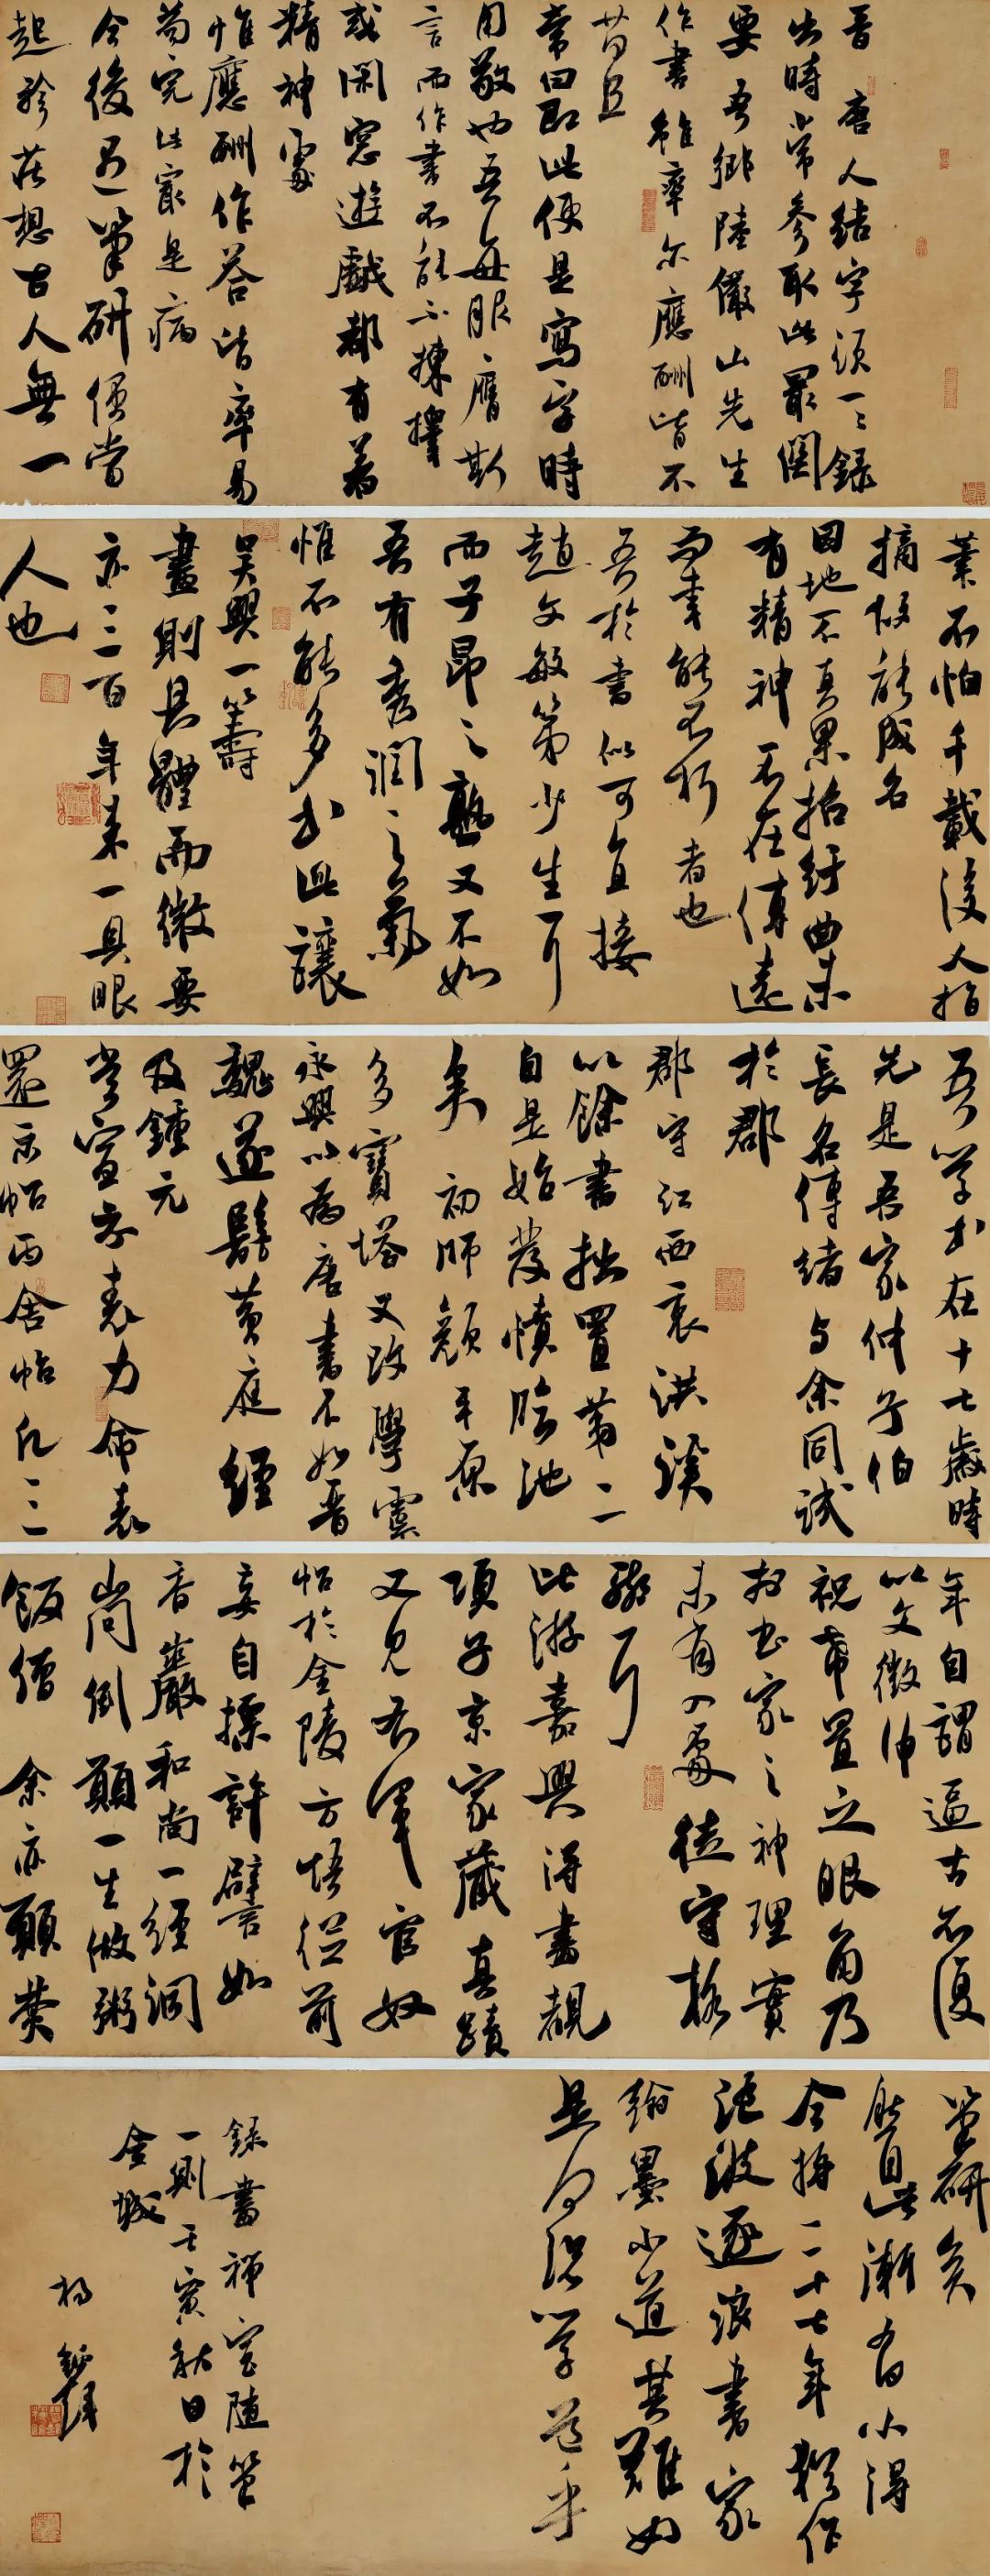 晋唐人結字須一々録
出時常参取此最関
要吾鄉陸儼山先生
作書雖率尔應酬皆不
苟且
常曰即此便是寫字時
用敬也吾每服膺斯
言而作書不能不揀擇
或閑窓遊戯都有着
精神處
惟應酬作答皆率易
苟完此寂是病
今後遇筆研便當
起矜莊想古人無一
筆不怕千載後人指
摘故能成名
因地不真果招紆曲未
有精神不在傳遠
而幸能不朽者也
吾於書似可直接
趙文敏第少生耳
而子昂之熟又不如
吾有秀潤之氣
惟不能多書此讓
吴興一籌
畫則具體而微要
亦三百年来一具眼
人也
吾學書在十七歲時
先是吾家仲子伯
長名傳緒与余同試
於郡
郡守江西衷洪溪
以余書拙置第二
自是始發憤臨池
矣 初師顔平原
多寶塔又改學虞
永興以為唐書不如晋
魏遂髣黄庭經
及鍾元
常宣示表力命表
還示帖丙舍帖凡三
年自謂逼古不復
以文徵仲
祝希哲置之眼角乃
於書家之神理實
未有入處徒守格
轍耳
比游嘉興得盡覩
項子京家藏真蹟
又見右軍官奴
帖於金陵方悟從前
妄自摽許譬如
香巖和尚一經洞
山問倒願一生做粥
飯僧 余亦願焚
筆研矣
然自此漸有小得
今将二十七年猶作
随波逐浪書家
翰墨小道其難如
是何況學道乎
録畫禅室随筆
一則壬寅秋日於
金城